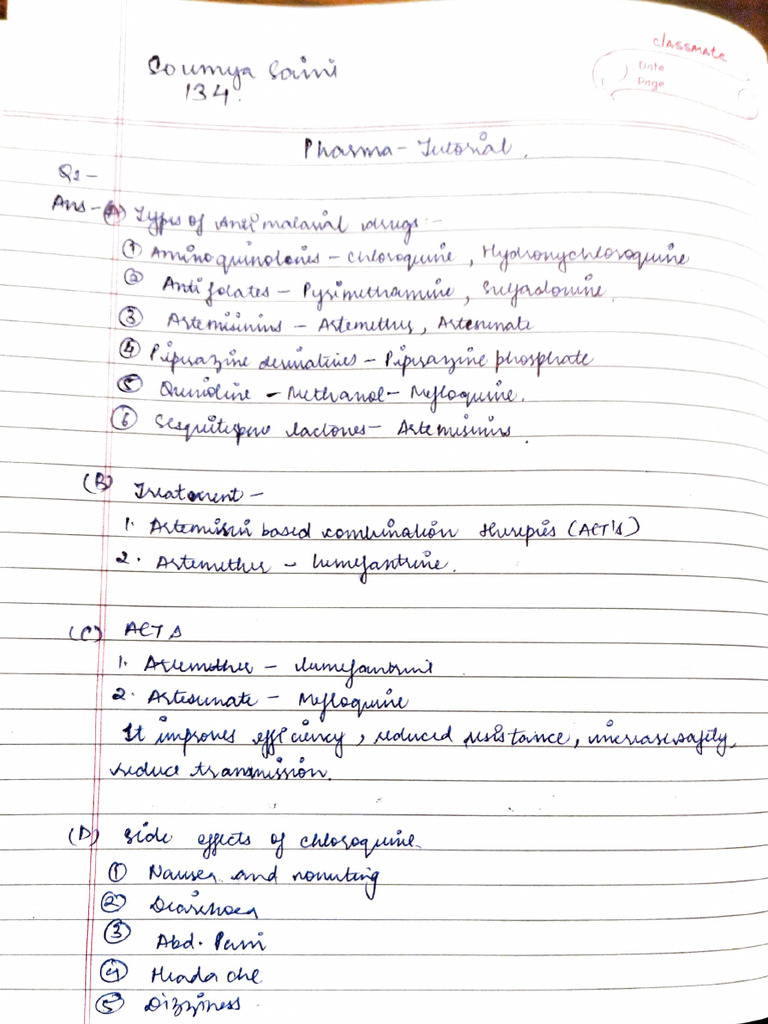 classmate
Date
Page
Soumya Saini
134.
Pharma - Tutorial.
Q1-
Ans- (A) Types of Antimalarial drugs:-
① Aminoquinolones - Chloroquine, Hydroxychloroquine
② Antifolates - Pyrimethamine, Sulfadoxine.
③ Artemisinins - Artemether, Artesunate
④ Piperazine derivatives - Piperazine phosphate
⑤ Quinoline - Methanol - Mefloquine.
⑥ Sesquiterpene lactones - Artemisinins.
(B) Treatment -
1. Artemisin based combination therepies (ACT's)
2. Artemether - lumefantrine.
(C) ACTs
1. Artemether - lumefantrine
2. Artesunate - Mefloquine
It improves efficiency, reduced resistance, increase safety,
reduce transmission.
(D) Side effects of chloroquine.
① Nausea and vomiting
② Diarrhoea
③ Abd. Pain
④ Headache
⑤ Dizziness.